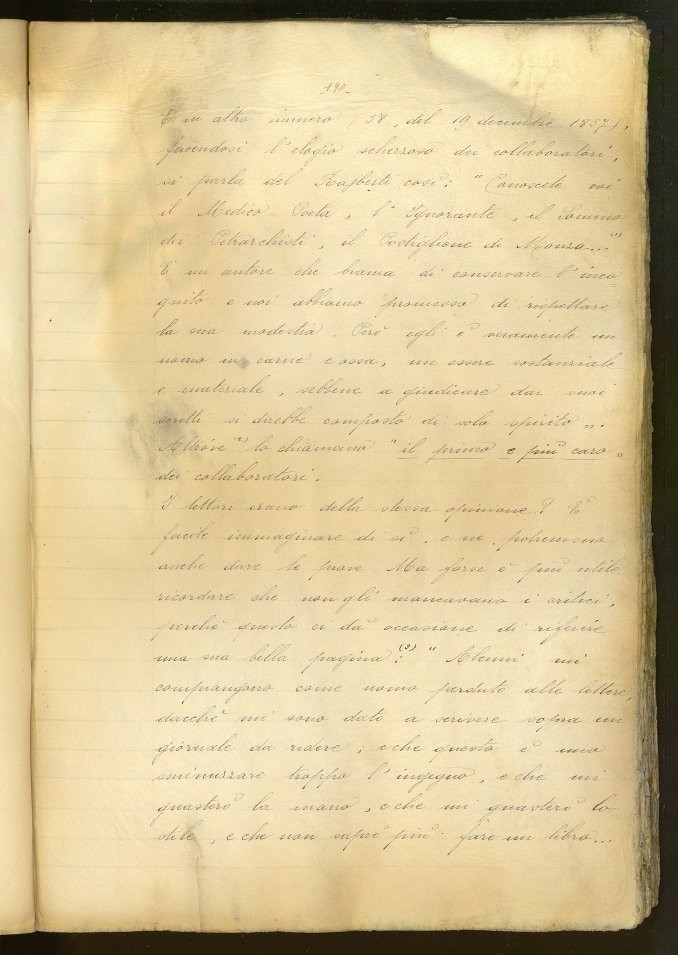 190-
E in altro numero (58, del 19 decembre 1857),
facendosi l'elogio scherzoso dei collaboratori,
si parla del Rajberti così: "Conoscete voi
il Medico-Poeta, l'Ignorante, il Sommo
dei Petrarchisti, il Costiglione di Monza..."(1)
E un autore che brama di conservare l'inco
gnito e noi abbiamo promesso di rispettare
la sua modestia. Però egli è veramente un
uomo in carne e ossa, un essere sostanziale
e materiale, sebbene a giudicare dai suoi
scritti si direbbe composto di solo spirito".
Altrove(2) lo chiamano "il primo e più caro"
dei collaboratori.
I lettori erano della stessa opinione? È
facile immaginare di sì, e ne potremmo
anche dare le prove. Ma forse è più utile
ricordare che non gli mancavano i critici,
perchè questo ci dà occasione di riferire
una sua bella pagina(3): "Alcuni mi
compiangono come uomo perduto alle lettere,
dacchè mi sono dato a scrivere sopra un
giornale da ridere; e che questo è uno
sminuzzare troppo l'ingegno, e che mi
guasterò la mano, e che mi guasterò lo
stile, e che non saprò più fare un libro...